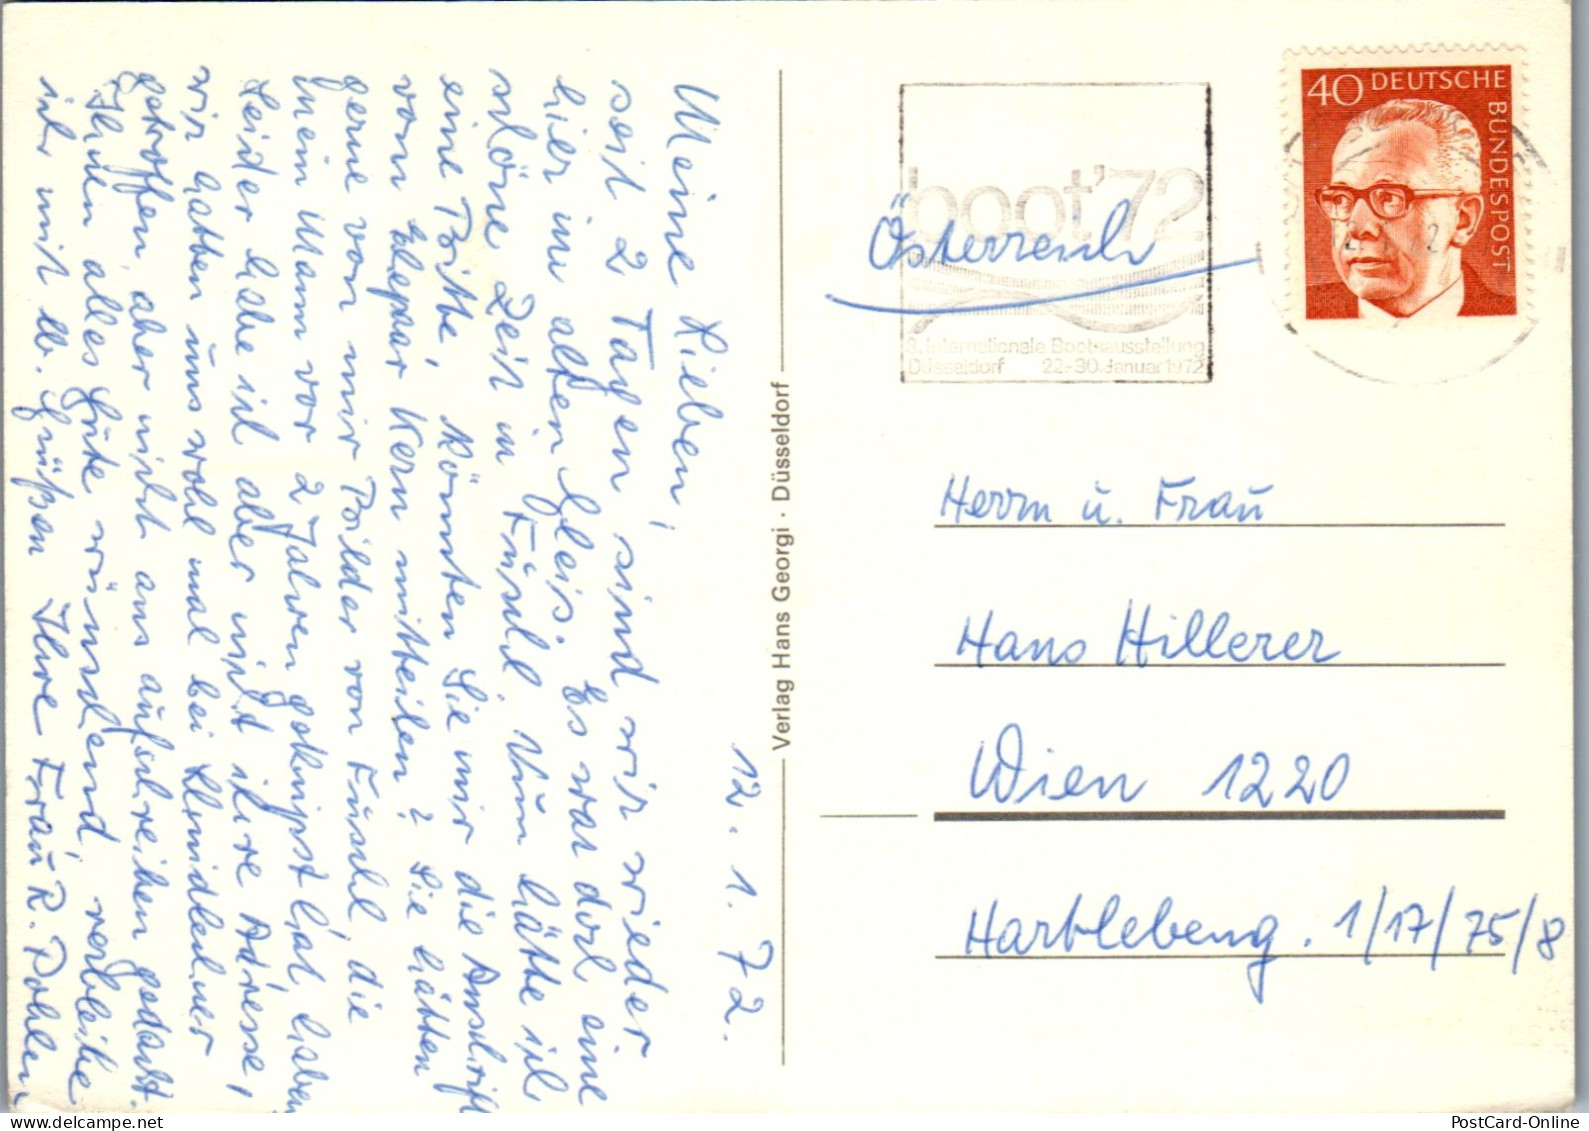 12. 1. 72.
Meine Lieben,
seit 2 Tagen sind wir wieder
hier im alten Gleis. Es war doch eine
schöne Zeit in Fuschl. Nun hätte ich
eine Bitte, könnten Sie mir die Anschrift
vom Ehepaar Kern mitteilen? Sie hätten
gerne von mir Bilder von Fuschl, die
mein Mann vor 2 Jahren geknipst hat, haben
Leider habe ich aber nicht ihre Adresse,
wir hatten uns wohl mal bei Schmidlehner
getroffen, aber nicht ans aufschreiben gedacht.
Ihnen alles Gute wünschend, verbleibe
ich mit lb. Grüßen Ihre Frau R. Pohlen
Verlag Hans Georgi · Düsseldorf
boot'72
3. Internationale Bootsausstellung
Düsseldorf 22.-30. Januar 1972
40 DEUTSCHE
BUNDESPOST
Österreich
Herrn u. Frau
Hans Hillerer
Wien 1220
Hartlebeng. 1/17/75/8
PostCard-Online